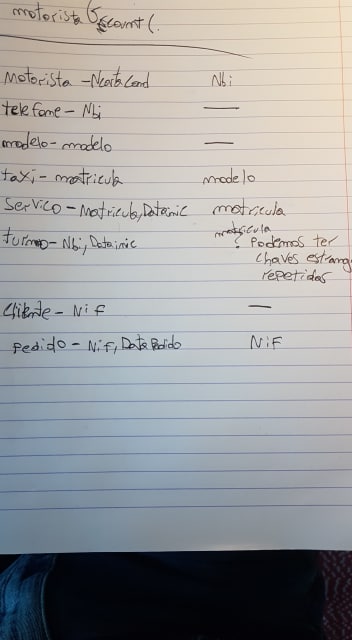 motorista count(.
Motorista - Ncartacond Nbi
telefone - Nbi —
modelo - modelo —
taxi - matricula modelo
Servico - Matricula, Datainic matricula
turno - Nbi, Datainic matricula
? Podemos ter
chaves estrang
repetidas
Cliente - Nif —
Pedido - Nif, DataPedido NiF